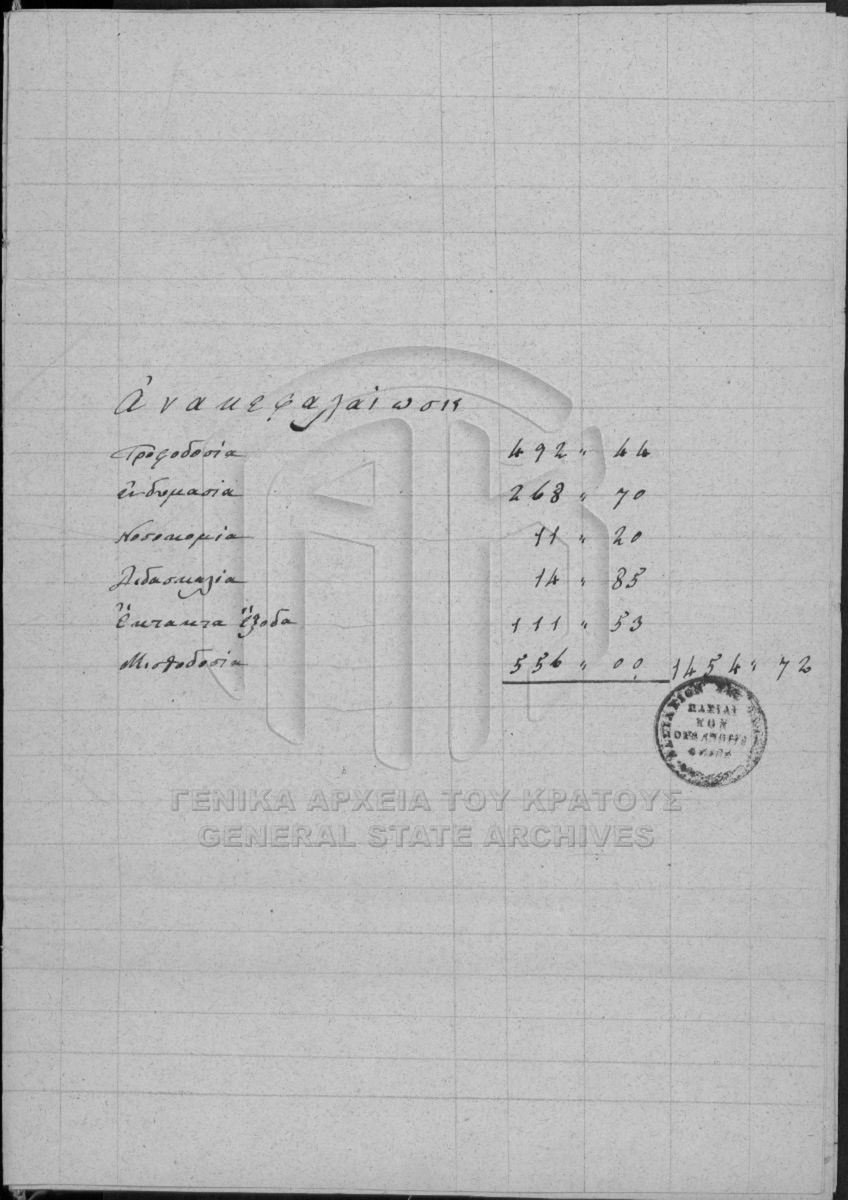 Ἀνακεφαλαίωσις
Τροφοδοσία 492 " 44
ἐνδυμασία 268 " 70
Νοσοκομία 11 " 20
Διδασκαλία 14 " 85
Ἔκτακτα ἔξοδα 111 " 53
Μισθοδοσία 556 " 00 1454 " 72
ΒΑΣΙΛΙ
ΚΟΝ
ΟΡΦΑΝΟΤΡΟ
ΓΕΝΙΚΑ ΑΡΧΕΙΑ ΤΟΥ ΚΡΑΤΟΥΣ
GENERAL STATE ARCHIVES